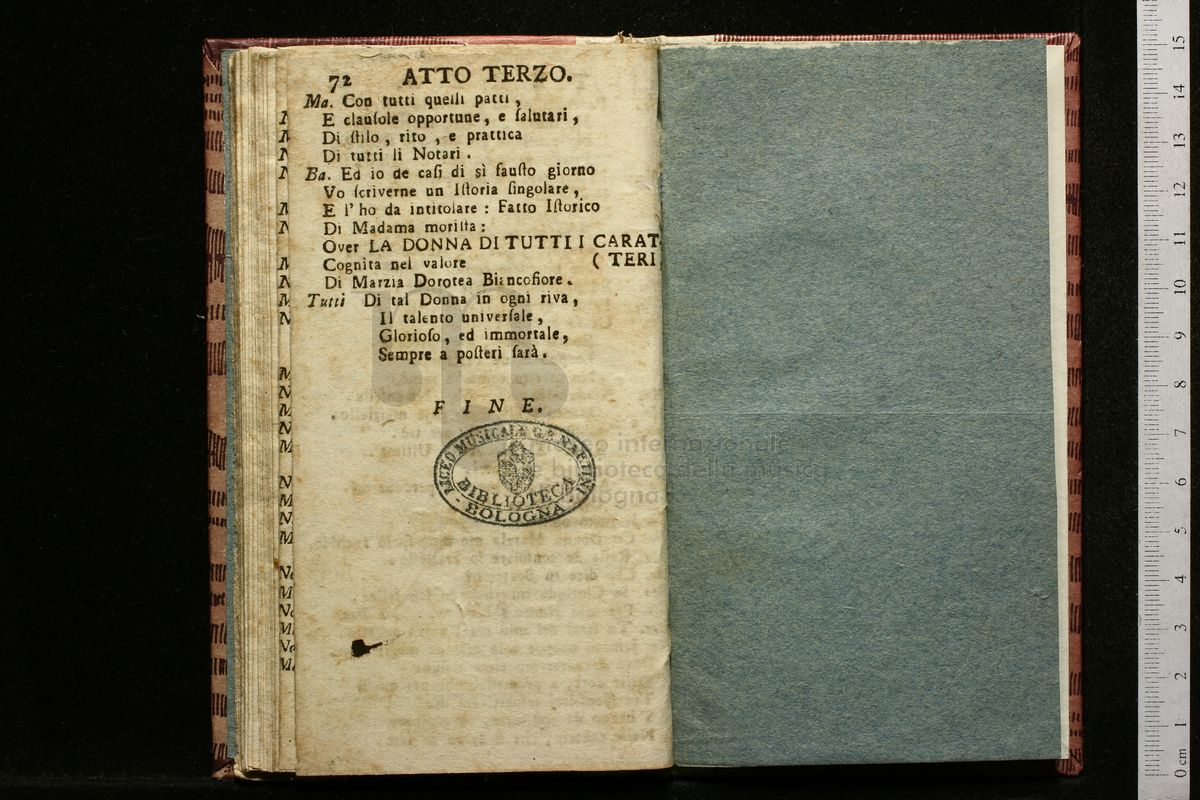 72 ATTO TERZO.
Ma. Con tutti quelli patti,
E clauſole opportune, e ſalutari,
Di ſtilo, rito, e prattica
Di tutti li Notari.
Ba. Ed io de caſi di sì fauſto giorno
Vo ſcriverne un Iſtoria ſingolare,
E l'ho da intitolare: Fatto Iſtorico
Di Madama
Over LA DONNA DI TUTTI I CARAT-
Cognita nel valore ( TERI
Di Marzia Dorotea Biancofiore.
Tutti Di tal Donna in ogni riva,
Il talento univerſale,
Glorioſo, ed immortale,
Sempre a poſteri ſarà.
FINE.
LICEO MUSICALE G.B. MARTINI
BIBLIOTECA
BOLOGNA
museo internazionale
e biblioteca della musica
bologna
0 cm 1 2 3 4 5 6 7 8 9 10 11 12 13 14 15